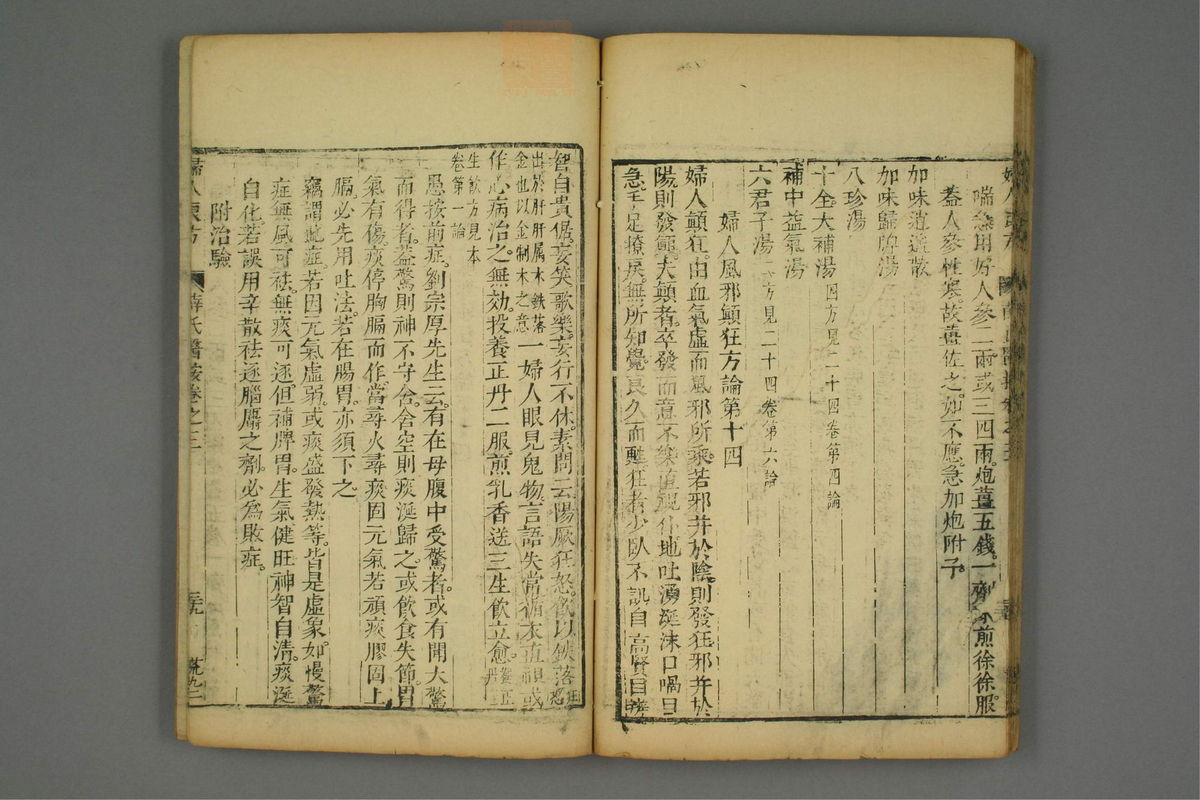 喘急用好人參二兩或三四兩炮薑五錢一劑水煎徐徐服
蓋人參性寒故薑佐之如不應急加炮附子
加味逍遙散
加味歸脾湯
八珍湯
十全大補湯四方見二十四卷第四論
補中益氣湯
六君子湯二方見二十四卷第六論
婦人風邪顛狂方論第十四
婦人顛狂由血氣虛而風邪所乘若邪并於陰則發狂邪并於
陽則發顛夫顛者卒發而意不樂直視仆地吐湧涎沫口喎目
急手足撩戾無所知覺良久而甦狂者少臥不飢自高賢自辯
智自貴倨妄笑歌樂妄行不休素問云陽厥狂怒飲以鉄落狂怒
出於肝肝属木鉄落金也以金制木之意一婦人眼見鬼物言語失常循衣直視或
作心病治之無効投養正丹二服煎乳香送三生飲立愈養正丹
生飲方見本卷第一論
愚按前症劉宗厚先生云有在母腹中受驚者或有開大驚
而得者蓋驚則神不守舍舍空則痰涎歸之或飲食失節胃
氣有傷痰停胸膈而作當尋火尋痰固元氣若頑痰膠固上
膈必先用吐法若在腸胃亦須下之
竊謂此症若因元氣虛弱或痰盛發熱等皆是虛象如慢驚
症無風可祛無痰可逐但補脾胃生氣健旺神智自清痰涎
自化若誤用辛散祛逐腦麝之劑必為敗症
附治驗
婦人良方
薛氏醫按卷之三